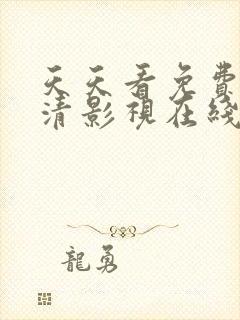 天天看免費
清影視在綫
龍勇